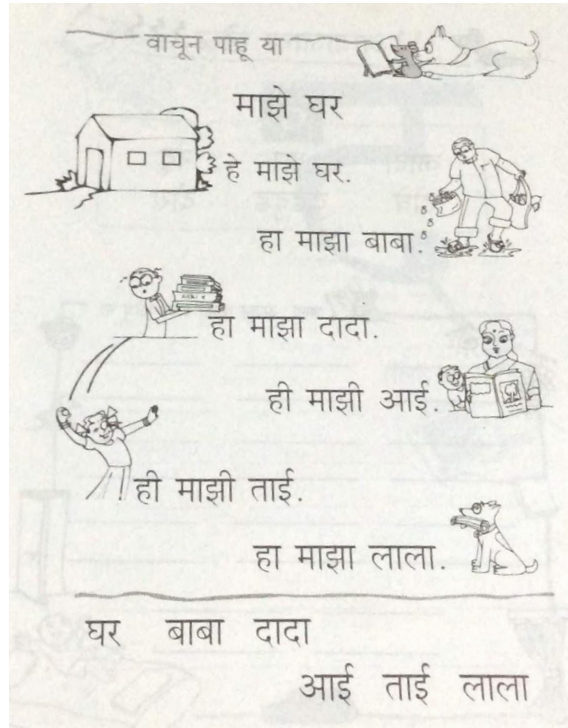 वाचून पाहू या
माझे घर
हे माझे घर.
हा माझा बाबा.
हा माझा दादा.
ही माझी आई.
ही माझी ताई.
हा माझा लाला.
घर बाबा दादा
आई ताई लाला